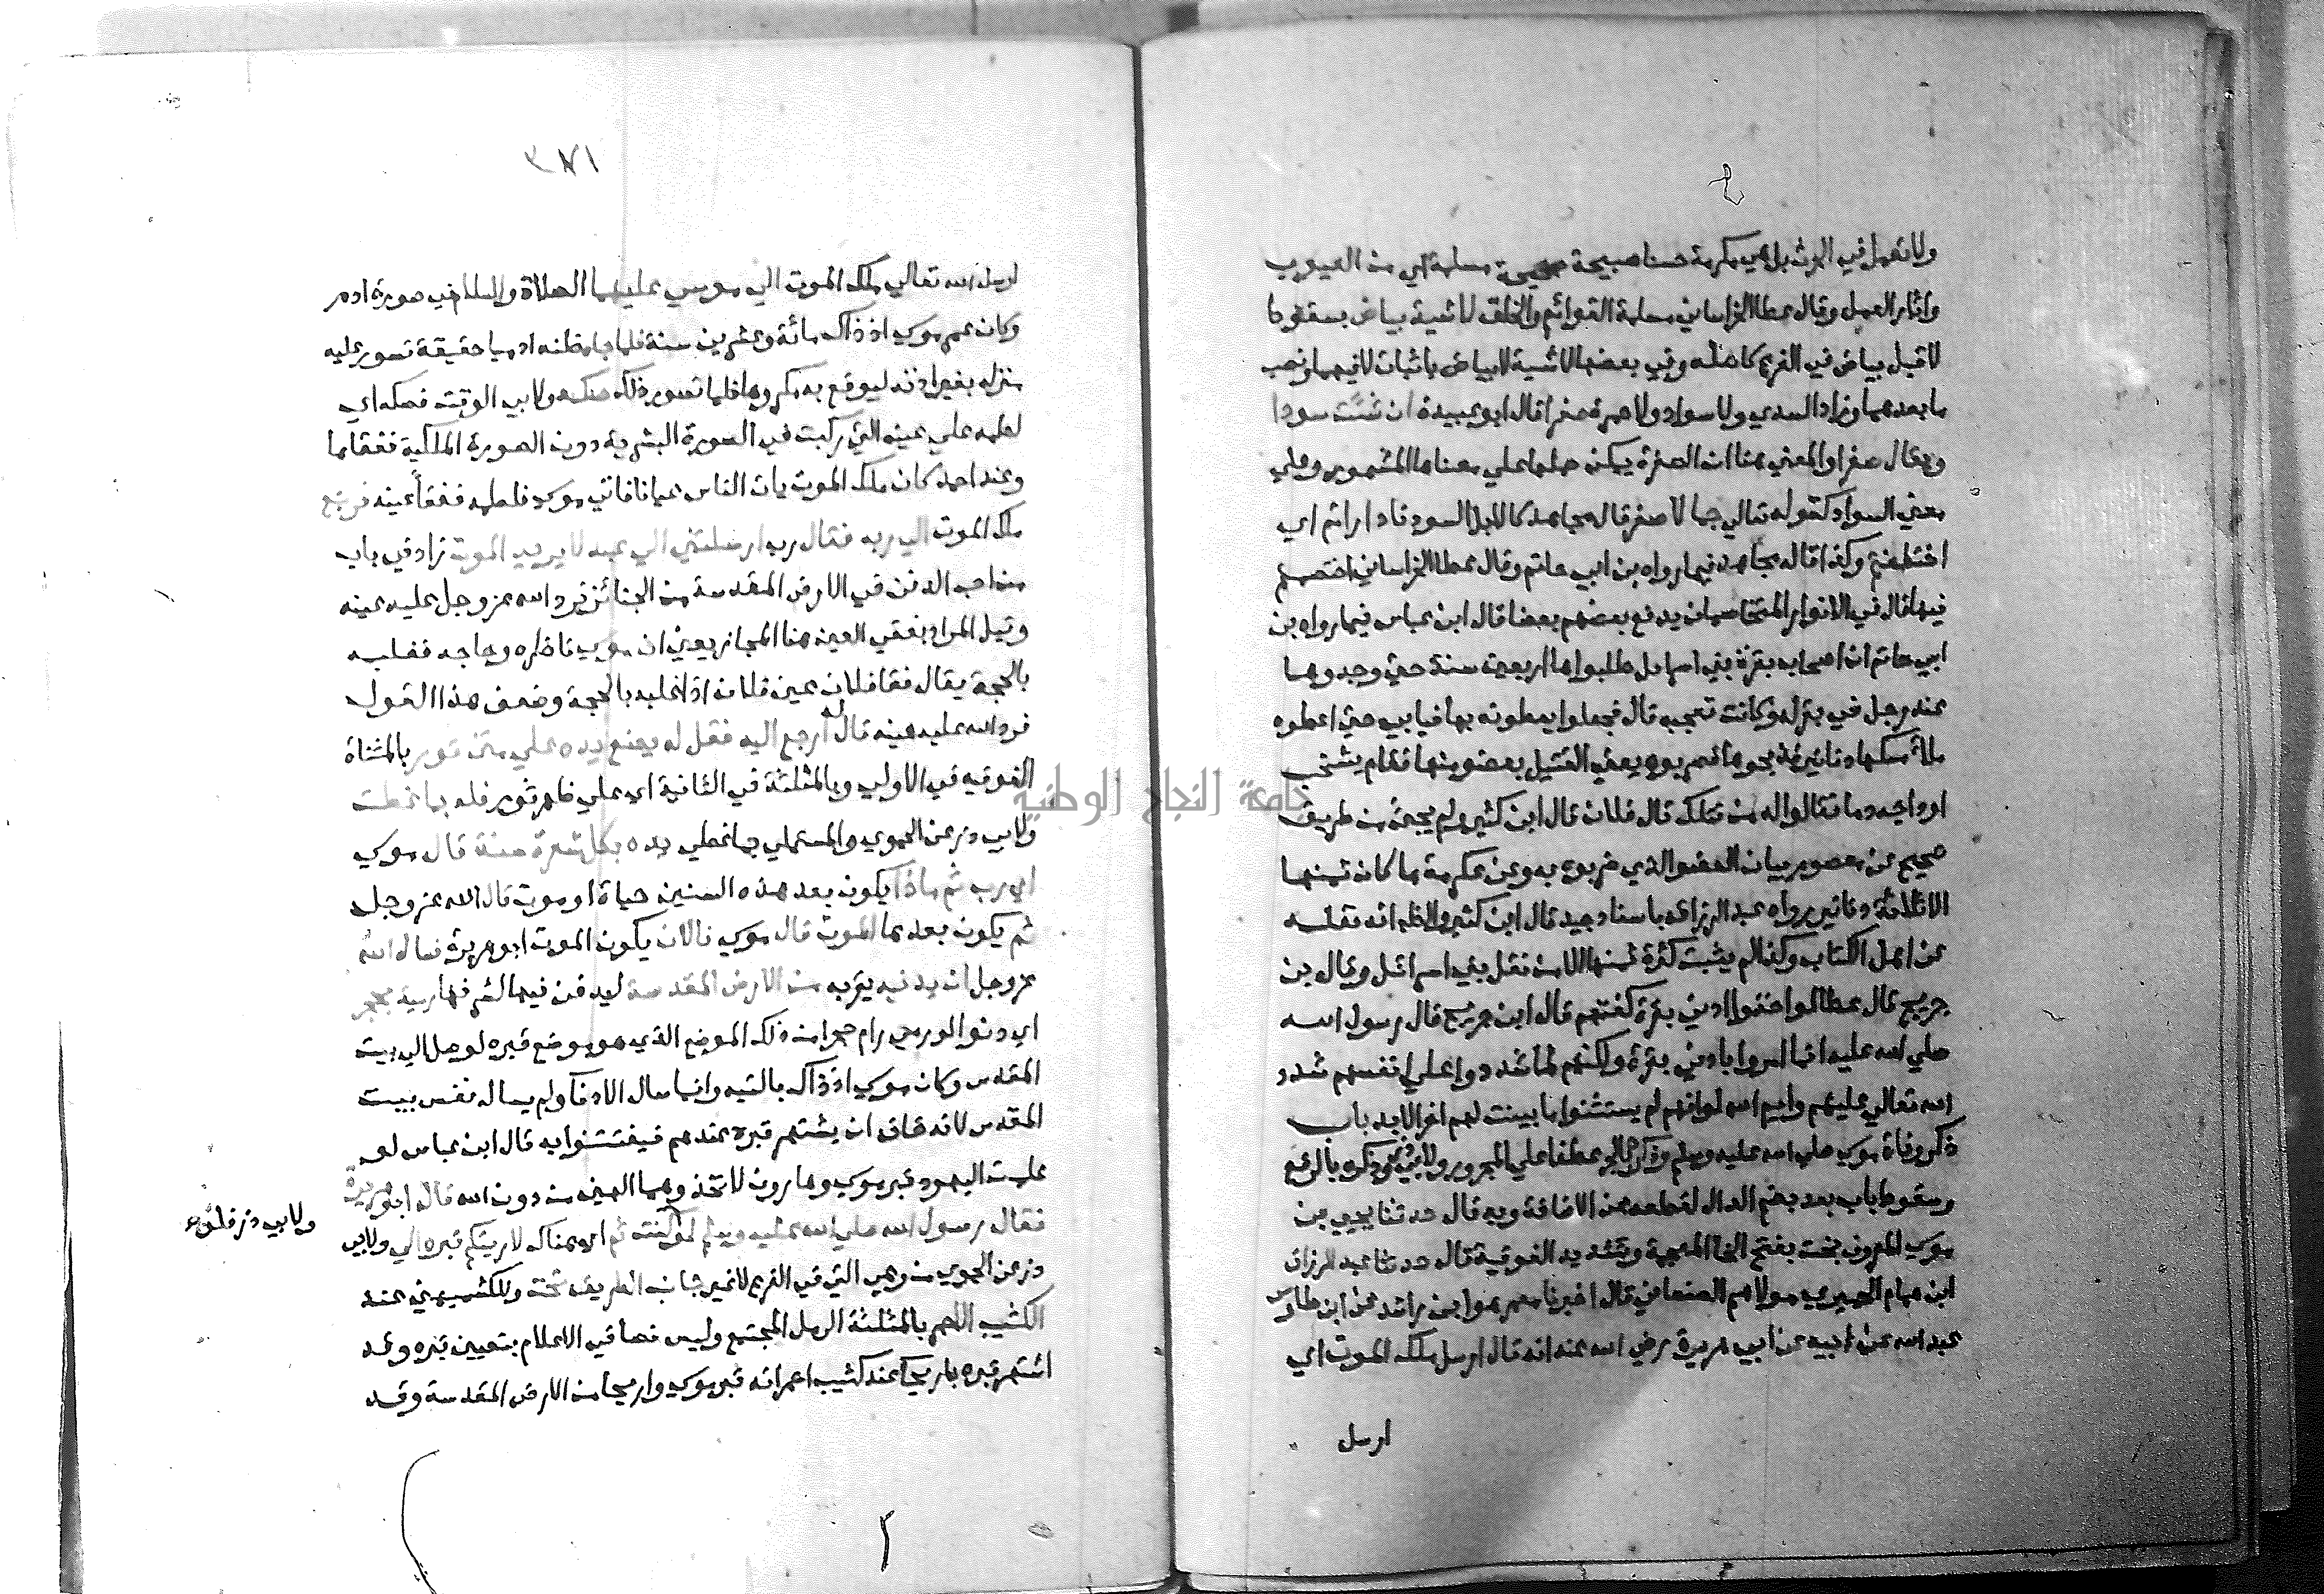 ولا تعمل في الحرث بل هي مكرمة حسنا صبيحة صحيحة مسلمة اي من العيوب
واثار العمل وقال عطا الخراساني مسلمة القوائم والخلق لا شية بياض بسقوط لا
لا قبل بياض في الفرع كاصله وفي بعضها لا شية لا بياض باثبات لا فيهما ونصب
ما بعدهما وزاد السدي ولا سواد ولا حمرة صفرا قال ابو عبيدة ان شئت سودا
ويقال صفرا والمعني هنا ان الصفرة يمكن حملها علي معناها المشهور وعلي
معني السواد كقوله تعالي جمالات صفر قال مجاهد كالابل السود فادارأتم اي
اختلفتم وكذا قاله مجاهد فيما رواه بن ابي حاتم وقال عطا الخراساني اختصمتم
فيها قال في الانوار المتخاصمان يدفع بعضهم بعضا قال ابن عباس فيما رواه بن
ابي حاتم ان اصحاب بقرة بني اسرايل طلبوها اربعين سنة حتي وجدوها
عند رجل في بقر له وكانت تعجبه قال فجعلوا يعطونه بها فيابي حتي اعطوه
ملأ مسكها دنانير فذبحوها فضربوه يعني القتيل بعضو منها فقام يشخب
اوداجه دما فقالوا له من قتلك قال فلان قال ابن كثير ولم يجئ من طريق
صحيح عن معصوم بيان العضو الذي ضربوه به وعن عكرمة ما كان ثمنها
الا ثلاثة دنانير رواه عبد الرزاق باسناد جيد قال ابن كثير والظاهر انه نقله
عن اهل الكتاب وكذا لم يثبت كثرة ثمنها الا من نقل بني اسرائل وقال بن
جريج قال عطا لو اخذوا ادني بقرة كفتهم قال ابن جريج قال رسول الله
صلي الله عليه انما امروا بادني بقرة ولكنهم لما شددوا علي انفسهم شدد
الله تعالي عليهم وايم الله لو انهم لم يستثنوا ما بينت لهم اخر الابد باب
ذكر وفاة موسي صلي الله عليه وسلم وذكر بالجر عطفا علي المجرور ولابي ذر وذكره بالرفع
وسقوط باب بعد بضم الدال لقطعه عن الاضافة وبه قال حدثنا يحيي بن
موسي المعروف بخت بفتح الخا المعجمة وتشديد الفوقية قال حدثنا عبد الرزاق
ابن همام الحميري مولاهم الصنعاني قال اخبرنا معمر هو ابن راشد عن ابن طاوس
عبد الله عن ابيه عن ابي هريرة رضي الله عنه انه قال ارسل ملك الموت اي
ارسل
٣٨١
ارسل الله تعالي ملك الموت الي موسي عليهما الصلاة والسلام في صورة ادمي
وكان عمر موسي اذ ذاك مائة وعشرين سنة فلما جاه ظنه ادميا حقيقة تسور عليه
منزله بغير اذنه ليوقع به مكروها فلما تصور ذلك صكه ولابي الوقت فصكه اي
لطمه علي عينه التي ركبت في الصورة البشرية دون الصورة الملكية ففقاها
وعند احمد كان ملك الموت يات الناس عيانا فاتي موسي فلطمه ففقأ عينه فرجع
ملك الموت الي ربه فقال رب ارسلتني الي عبد لا يريد الموت زاد في باب
من احب الدفن في الارض المقدسة من الجنائز فرد الله عز وجل عليه عينه
وقيل المراد بفقي العين هنا المجاز يعني ان موسي ناظره وحاجه فغلبه
بالحجة يقال فقا فلان عين فلان اذا غلبه بالحجة وضعف هذا القول
فرد الله عليه عينه قال له ارجع اليه فقل له يضع يده علي متن ثور بالمثناة
الفوقيه في الاولي وبالمثلثة في الثانية اي علي ظهر ثور فله بما غطت
ولابي ذر عن الحموي والمستملي بما غطي يده بكل شعرة سنة قال موسي
اي رب ثم ماذا يكون بعد هذه السنين حياة او موت قال الله عز وجل
ثم يكون بعدها الموت قال موسي فالان يكون الموت ابو هريرة فسال الله
عز وجل ان يدنيه يقربه من الارض المقدسة ليدفن فيها لشرفها رمية بحجر
اي دنوا لو رمي رام حجرا من ذلك الموضع الذي هو موضع قبره لوصل الي بيت
المقدس وكان موسي اذ ذاك بالتيه وانما سال الادنا ولم يساله نفس بيت
المقدس لانه خاف ان يشتهر قبره عندهم فيفتتنوا به قال ابن عباس لو
علمت اليهود قبر موسي وهارون لاتخذوهما الهين من دون الله قال ابو هريرة
فقال رسول الله صلي الله عليه وسلم لو كنت ثم اي هناك لاريتكم قبره الي ولابي
ولابي ذر فلو
ذر عن الحموي من وهي التي في الفرع لا غير جانب الطريق تحت وللكشميهني عند
الكثيب الاحمر بالمثلثة الرمل المجتمع وليس نصا في الاعلام بتعيين قبره وقد
اشتهر قبره باريحا عند كثيب احمر انه قبر موسي واريحا من الارض المقدسة وقد
جامعة النجاح الوطنية